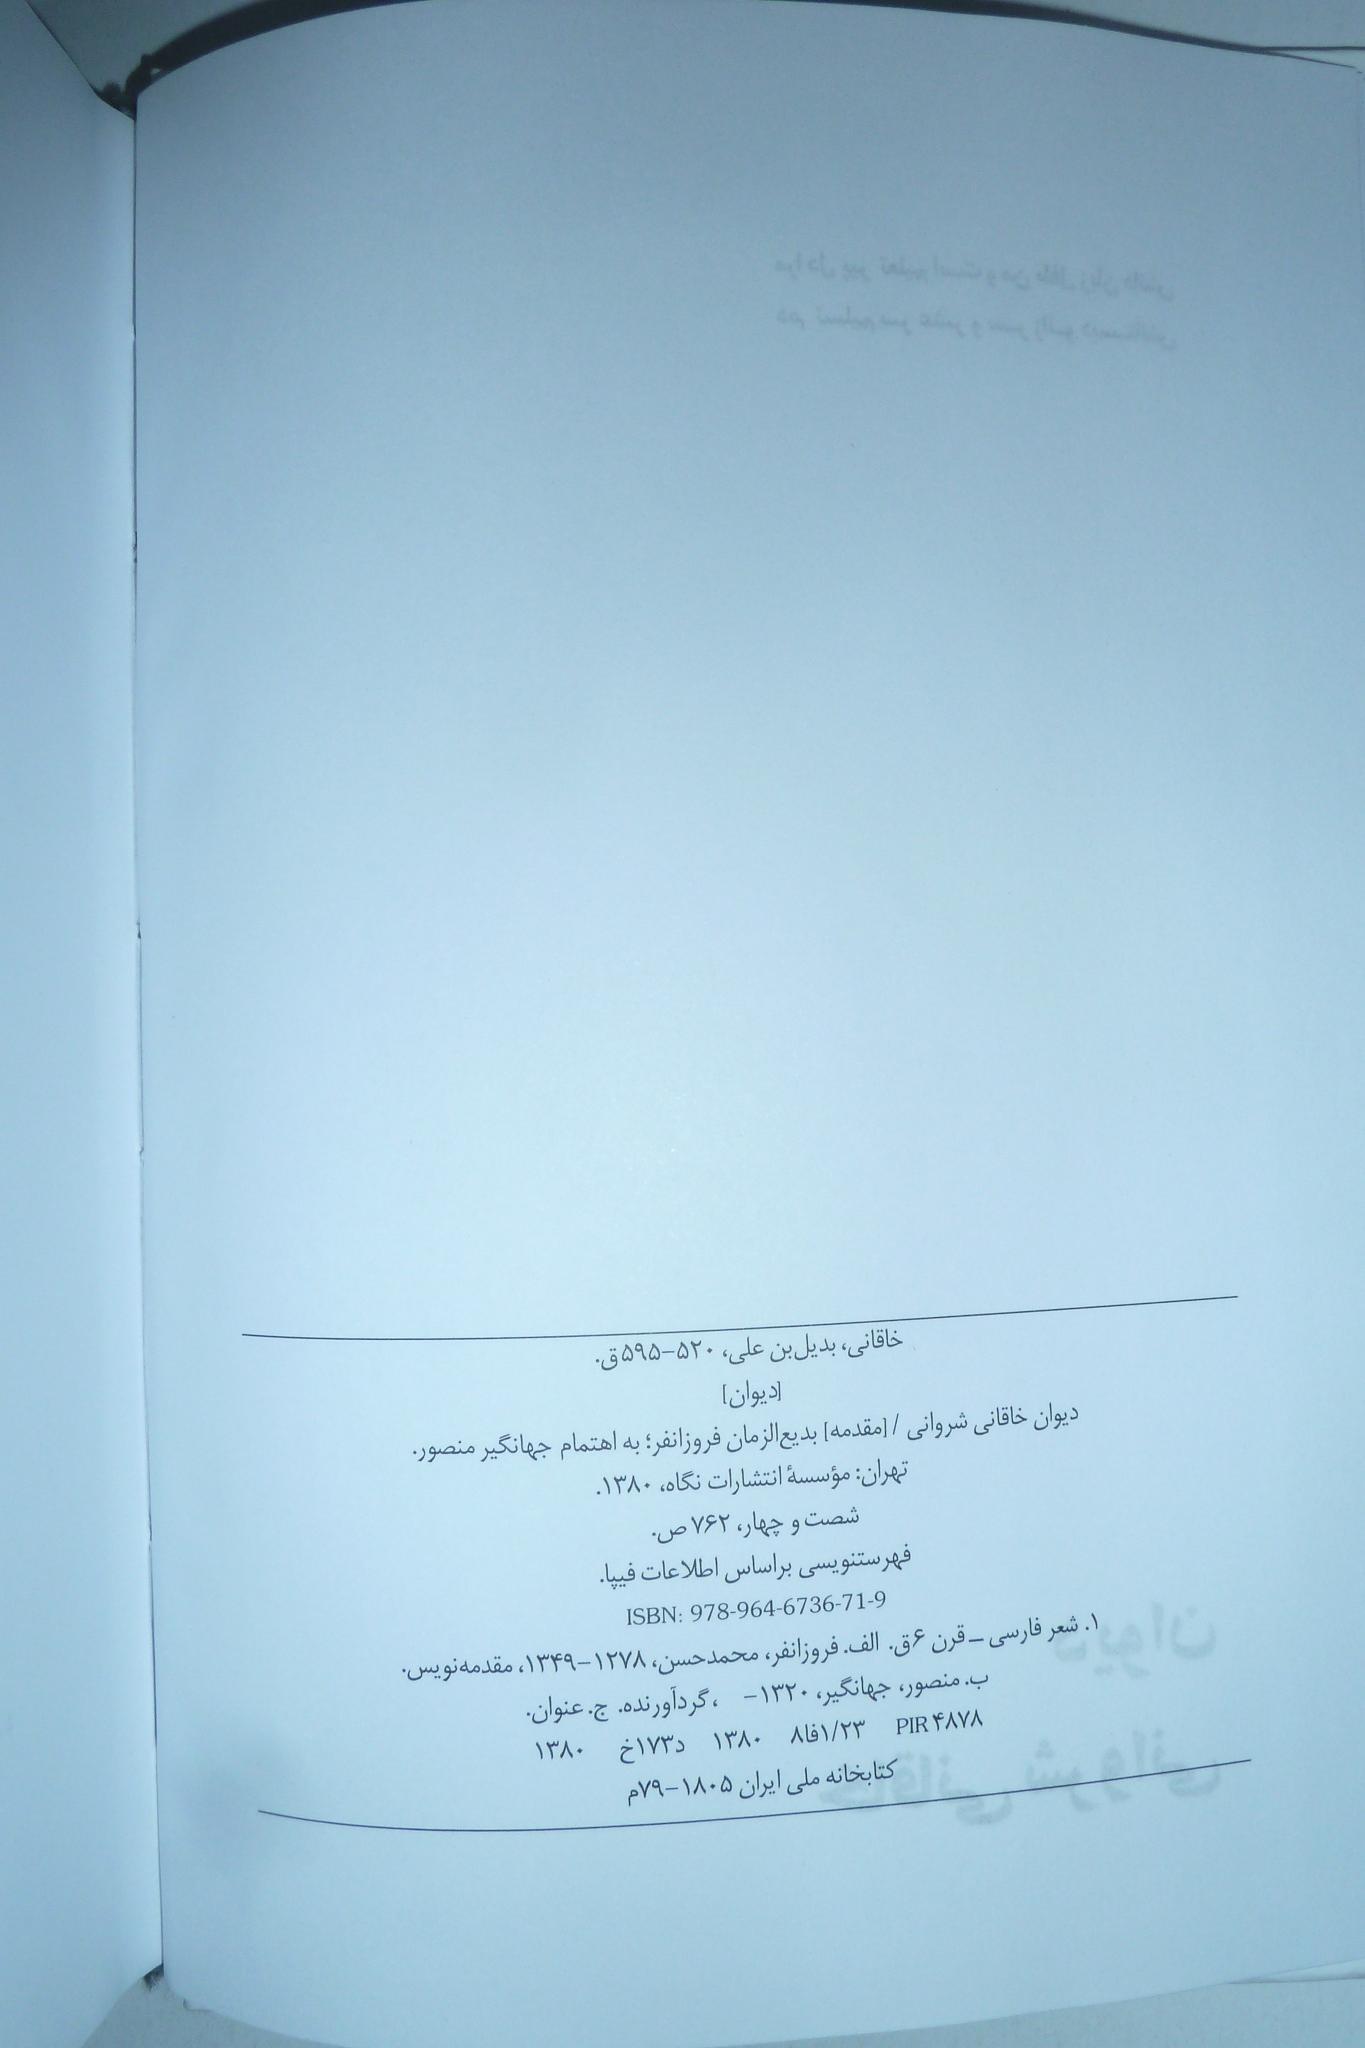 خاقانی، بدیل‌بن علی، ۵۲۰–۵۹۵ق.
[دیوان]
دیوان خاقانی شروانی / [مقدمه] بدیع‌الزمان فروزانفر؛ به اهتمام جهانگیر منصور.
تهران: مؤسسهٔ انتشارات نگاه، ۱۳۸۰.
شصت و چهار، ۷۶۲ ص.
فهرستنویسی براساس اطلاعات فیپا.
ISBN: 978-964-6736-71-9
۱. شعر فارسی ــ قرن ۶ق. الف. فروزانفر، محمدحسن، ۱۲۷۸–۱۳۴۹، مقدمه‌نویس.
ب. منصور، جهانگیر، ۱۳۲۰– ، گردآورنده. ج. عنوان.
PIR ۴۸۷۸ ۱/۲۳فا۸ ۱۳۸۰ د۱۷۳خ ۱۳۸۰
کتابخانه ملی ایران ۱۸۰۵–۷۹م
دیوان
خاقانی شروانی